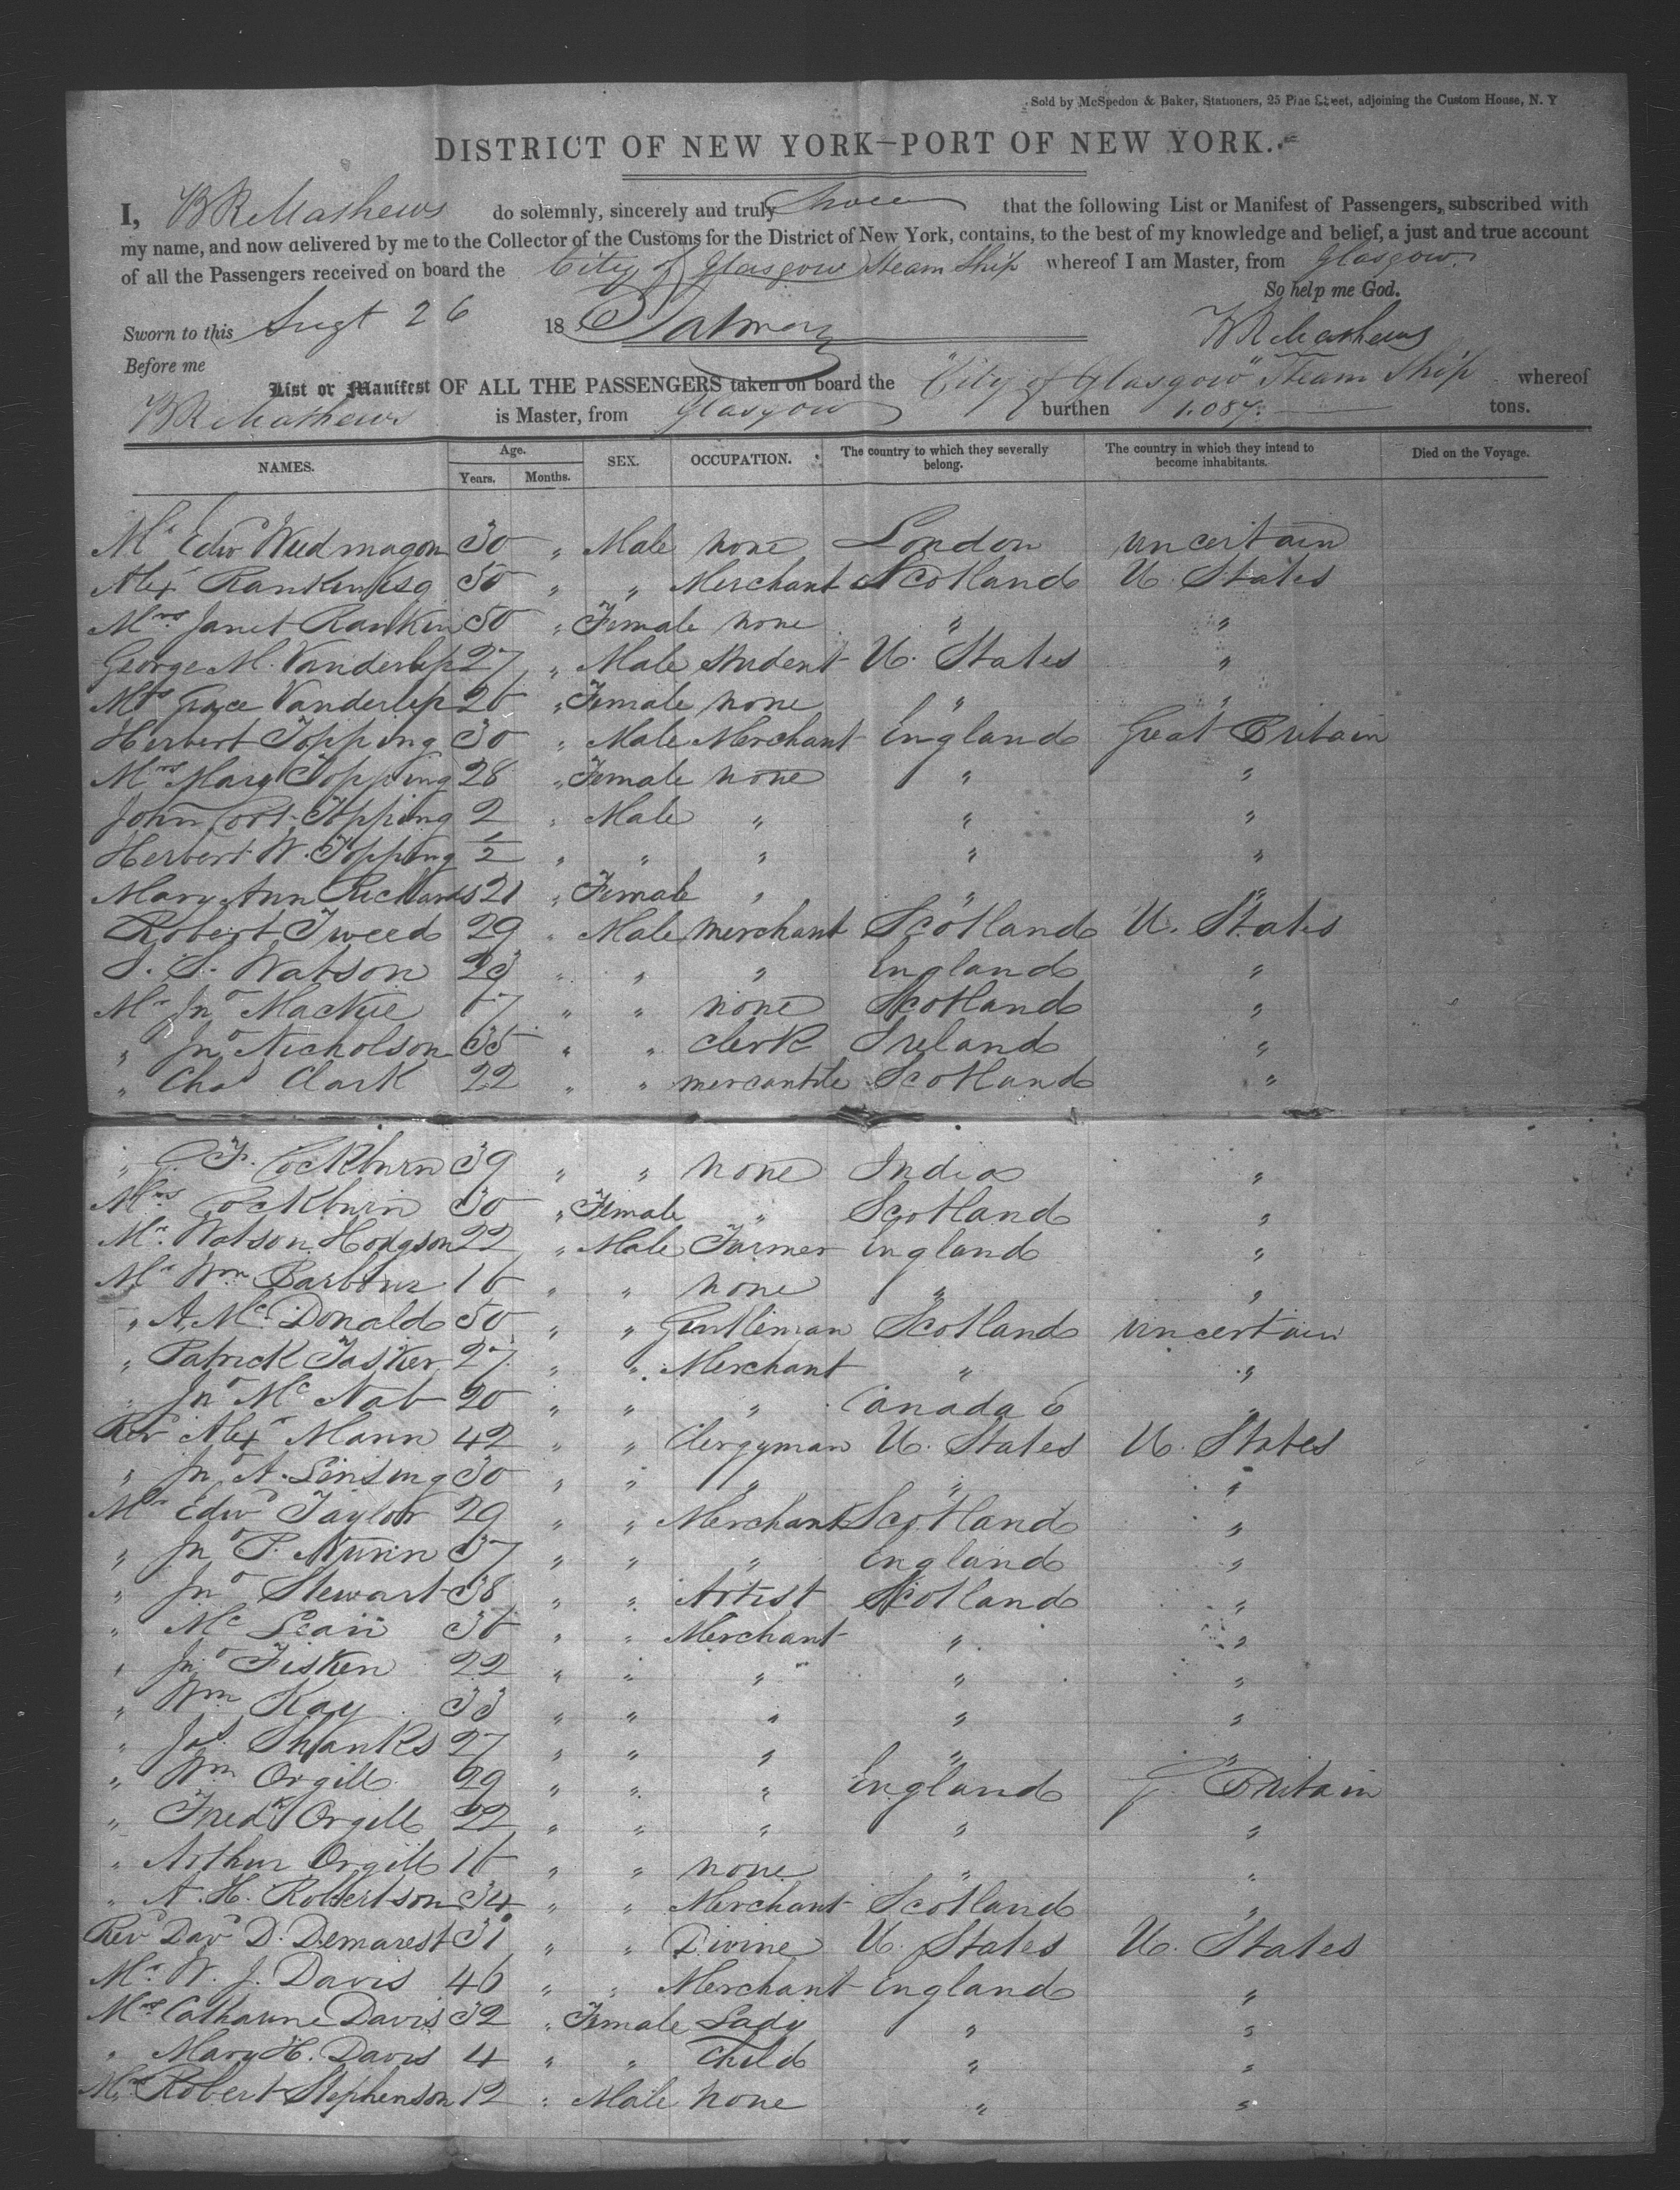 Sold by McSpedon & Baker, Stationers, 25 Pine Street, adjoining the Custom House, N. Y
DISTRICT OF NEW YORK—PORT OF NEW YORK.
I, B R Mathews do solemnly, sincerely and truly that the following List or Manifest of Passengers, subscribed with
my name, and now delivered by me to the Collector of the Customs for the District of New York, contains, to the best of my knowledge and belief, a just and true account
of all the Passengers received on board the City of Glasgow Steam Ship whereof I am Master, from Glasgow
So help me God.
Sworn to this 26 18
B R Mathews
Before me
List or Manifest OF ALL THE PASSENGERS taken on board the "City of Glasgow" Steam Ship whereof
B R Mathews is Master, from Glasgow burthen 1.087 tons.
NAMES. Age. Years. Months. SEX. OCCUPATION. The country to which they severally belong. The country in which they intend to become inhabitants. Died on the Voyage.
Mr Edwd 30 " Male none London uncertain
Alexr Rankin Esq 50 " " Merchant Scotland U. States
Mrs Janet Rankin 50 " Female none " "
George M. Vanderlip 27 " Male Student U. States "
Mrs Grace Vanderlip 26 " Female none " "
Herbert Topping 30 " Male Merchant England Great Britain
Mrs Mary Topping 28 " Female none " "
John Topping 2 " Male " " "
Herbert W. Topping 1/2 " " " " "
Mary Ann Richards 21 " Female " " "
Robert Tweed 29 " Male Merchant Scotland U. States
Watson 23 " " " England "
Mr Jno Mackie 67 " " none Scotland "
" Jno Nicholson 35 " " Clerk Ireland "
" Chas Clark 22 " " mercantile Scotland "
" F. Cockburn 39 " " none India "
Mrs Cockburn 30 " Female " Scotland "
Mr Watson Hodgson 22 " Male Farmer England "
Mr Wm Barbour 16 " " none " "
" A. McDonald 50 " " Gentleman Scotland uncertain
" Patrick Tasker 27 " " Merchant " "
" Jno McNab 20 " " " Canada "
Rev Alexr Mann 42 " " Clergyman U. States U. States
" Jno A. 30 " " " " "
Mr Edwd Taylor 29 " " Merchant Scotland "
" Jno P. Nunn 37 " " " England "
" Jno Stewart 38 " " Artist Scotland "
" McLean 36 " " Merchant " "
" Jno Fisken 22 " " " " "
" Wm Kay 33 " " " " "
" Jas Shanks 27 " " " " "
" Wm Orgill 29 " " " England G. Britain
" Fredk Orgill 22 " " " " "
" Arthur Orgill 16 " " none " "
" A. H. Robertson 34 " " Merchant Scotland "
Revd Davd D. Demarest 31 " " Divine U. States U. States
Mr W. J. Davis 46 " " Merchant England "
Mrs Catharine Davis 32 " Female Lady " "
" Mary H. Davis 4 " " Child " "
Mr Robert Stephenson 12 " Male none " "